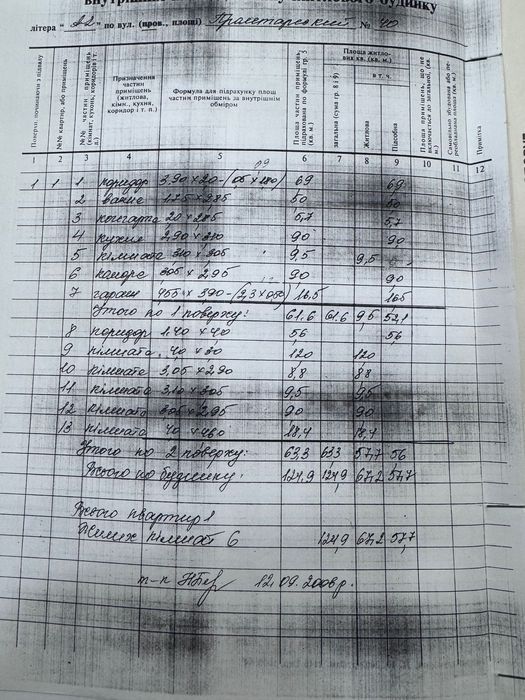 будинку
літера "А2" по вул. (пров., площі) Пролетарський № 40
Поверхи, починаючи з підвалу
№№ квартир, або приміщень
№№ частин приміщень (кімнат, кухонь, коридорів і т. п.)
Призначення частин приміщень (житлова, кімн., кухня, коридор і т. п.)
Формула для підрахунку площ частин приміщень за внутрішнім обміром
Площа частин приміщень, підрахована по формулі гр. 5 (кв. м.)
Площа житлових кв. (кв. м.)
загальна (сума гр. 8 і 9)
в т. ч.
Житлова
Підсобна
Площа приміщень, що не включається до загальної, (кв. м.)
Самовільно збудована або переобладнана площа (кв. м.)
Примітка
1 2 3 4 5 6 7 8 9 10 11 12
1 1 1. коридор 6,9 6,9
2 ванне 1.75 × 2.85 5,0 5,0
3 20 × 285 5,7 5,7
4 кухня 2,90 × 310 9,0 9,0
5 кімната 310 × 305 9,5 9,5
6 305 × 2,95 90 90
7 гараж 16,5 16,5
Итого по 1 поверху: 61.6 61,6 9,5 52,1
8 коридор 1.40 × 40 56 56
9 кімната 40 × 30 120 120
10 кімната 3,05 × 2,90 8,8 8,8
11 кімната 3,10 × 305 9,5 9,5
12 кімната 305 × 2,95 90 90
13 кімната 40 × 460 18,4 18,4
Итого по 2 поверху: 63,3 63,3 57,7 56
Всього по будинку: 124,9 124,9 67,2 57,7
Всього квартир 1
Жилих кімнат 6 124,9 67,2 57,7
т-к 12.09.2008р.